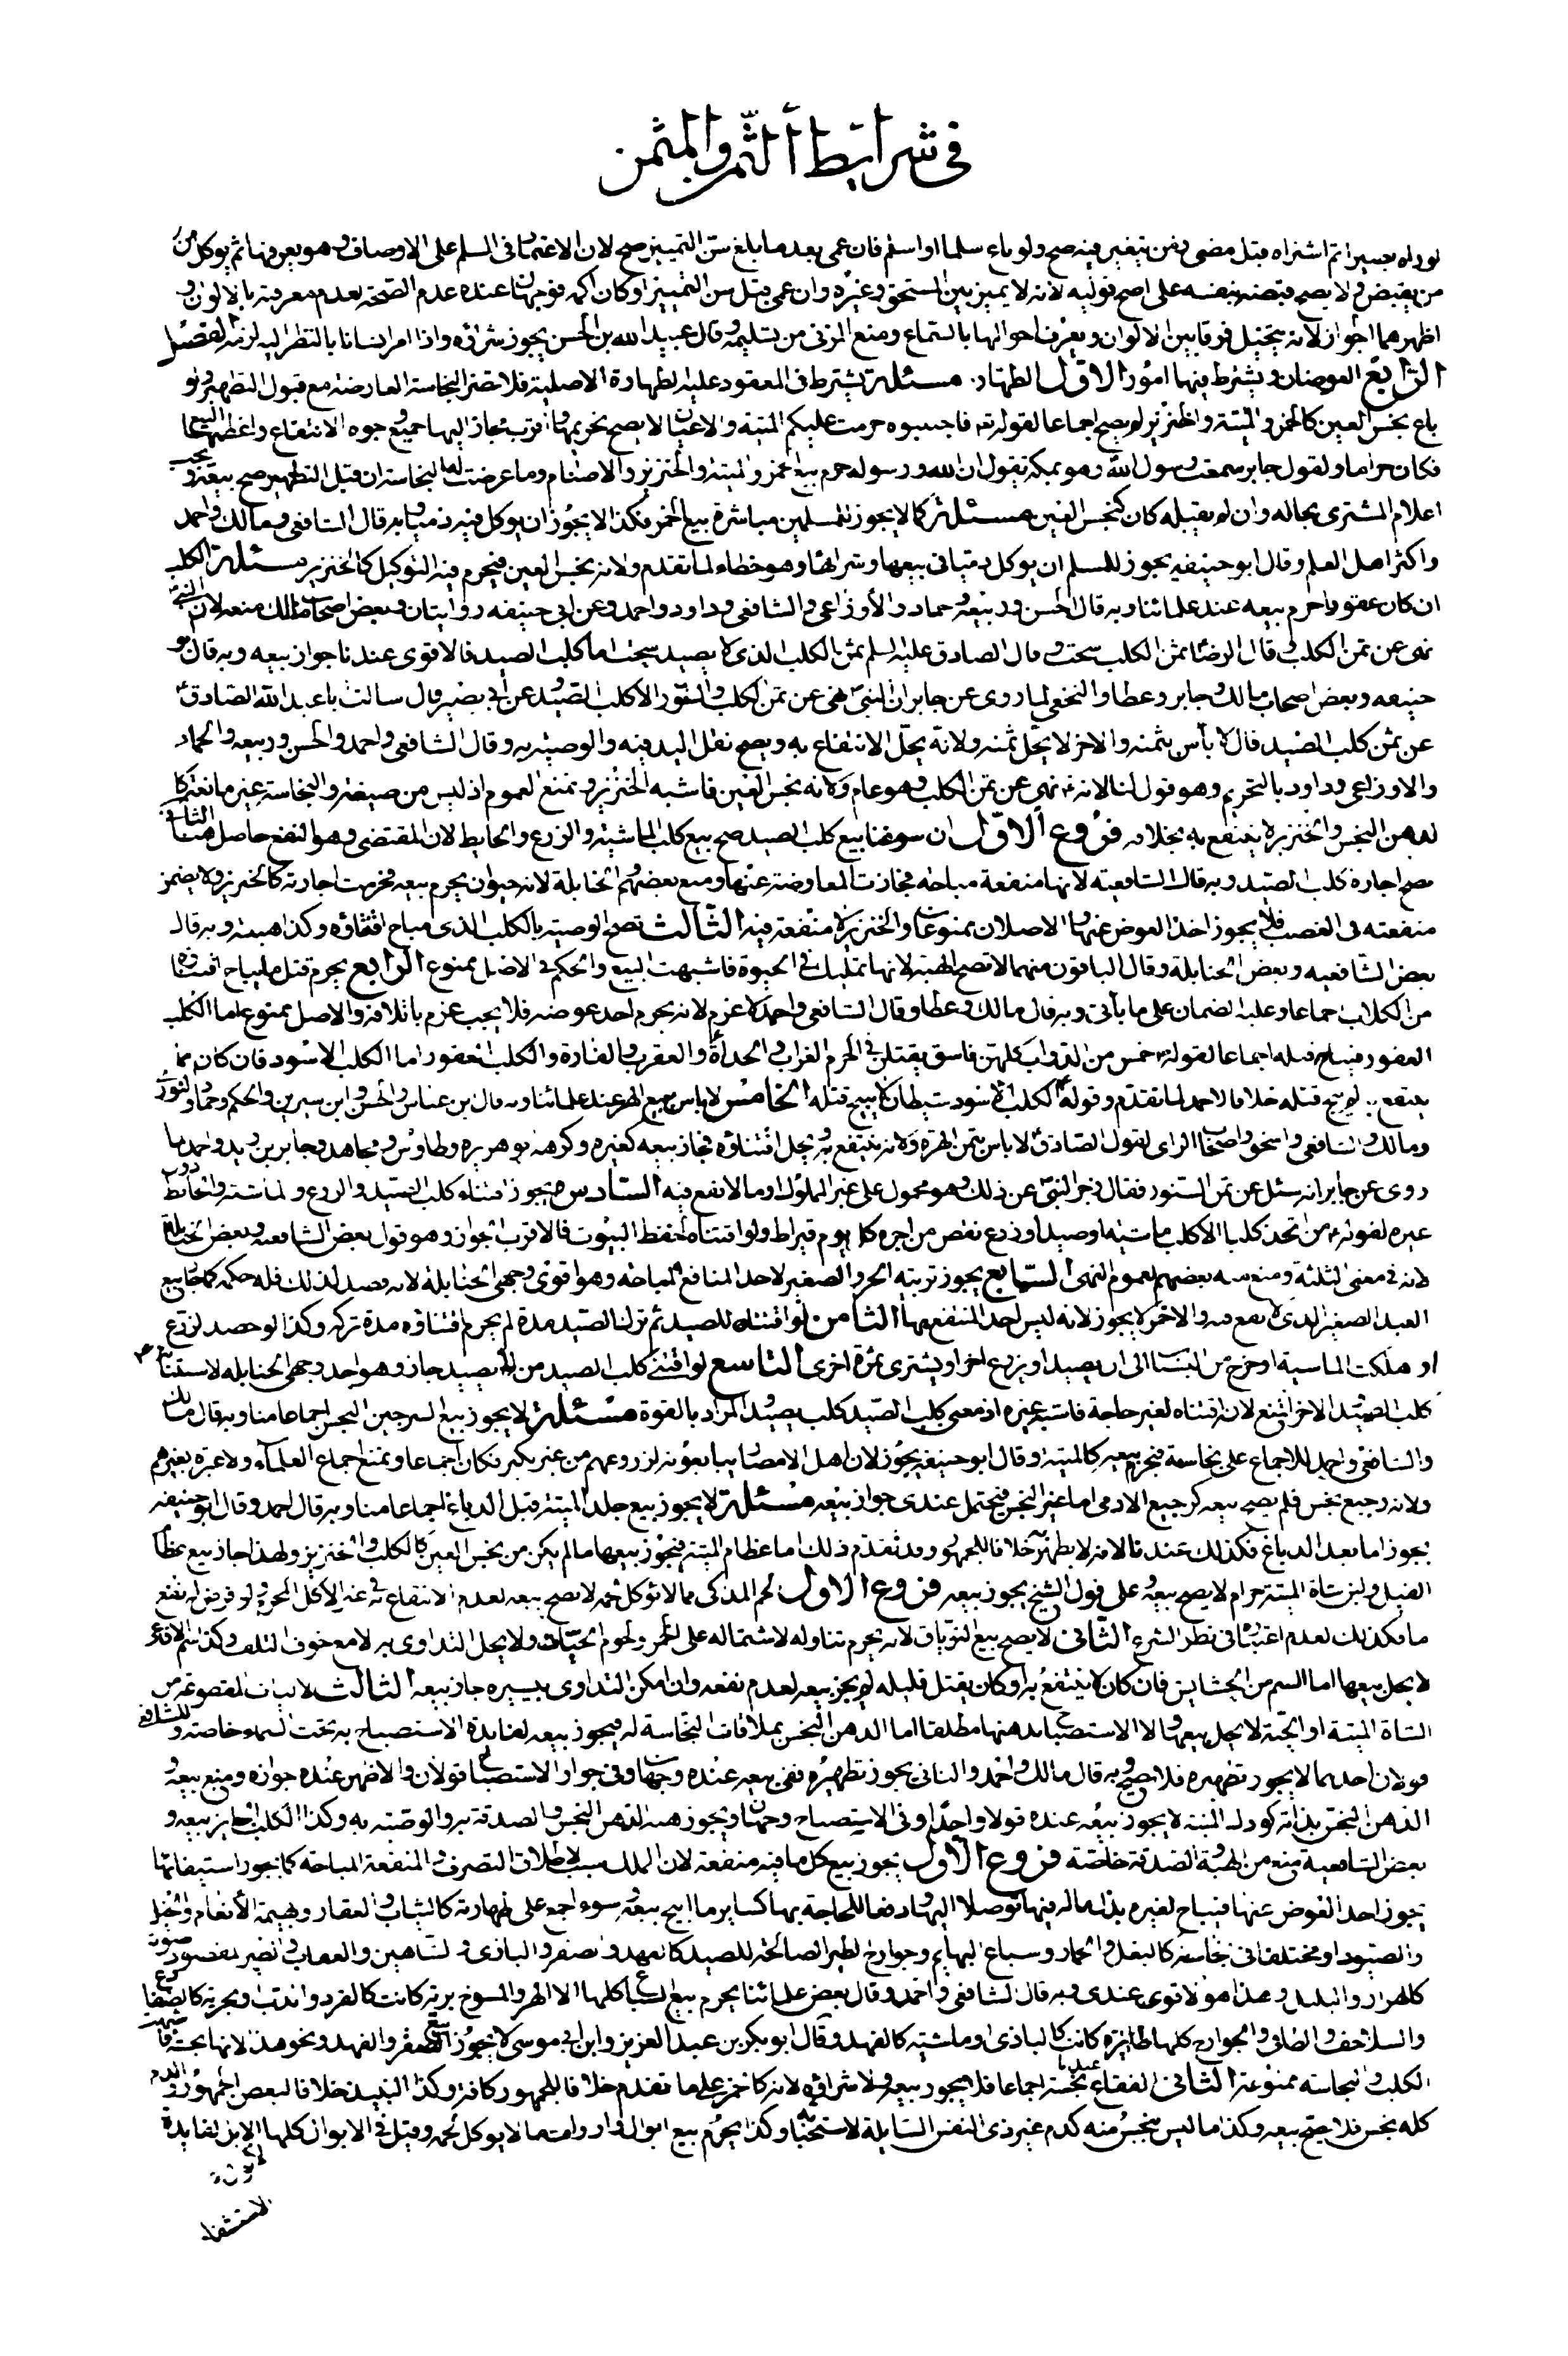 في شرايط الثمن والمثمن
لو راه بصيرا ثم اشتراه قبل مضي زمن يتغير فيه صح ولو باع سلما او اسلم فان عمي بعد ما بلغ سن التمييز صح لان الاعتماد في السلم على الاوصاف وهو يعرفها ثم يوكل من
من يقبض ولا يصح قبضه بنفسه على اصح قوليه لانه لا يميز بين المستحق وغيره وان عمي قبل سن التمييز او كان اكمه فوجهان عنده عدم الصحة لعدم معرفته بالالوان و
اظهرهما الجواز لانه يتخيل فرقا بين الالوان ويعرف احوالها بالسماع ومنع المزني من تسليمه وقال عبيد الله بن الحسن يجوز شراؤه واذا امر انسانا بالنظر اليه لزمه الفصل
الرابع العوضان ويشترط فيها امور الاول الطهارة مسئلة يشترط في المعقود عليه الطهارة الاصلية فلا تضر النجاسة العارضة مع قبول التطهير ولو
باع نجس العين كالخمر والميتة والخنزير لم يصح اجماعا لقوله تع فاجتنبوه حرمت عليكم الميتة والاعيان لا يصح تحريمها واقرب مجاز اليها جميع وجوه الانتفاع واعظمها البيع
فكان حراما ولقول جابر سمعت رسول الله وهو بمكة يقول ان الله ورسوله حرم بيع الخمر والميتة والخنزير والاصنام وما عرضت له النجاسة ان قبل التطهير صح بيعه ويجب
اعلام المشتري بحاله وان لم يقبله كان كنجس العين مسئلة كما لا يجوز للمسلمين مباشرة بيع الخمر فكذا لا يجوز ان يوكل فيه ذميا وبه قال الشافعي ومالك واحمد
واكثر اهل العلم وقال ابو حنيفه يجوز للمسلم ان يوكل ذميا في بيعها وشرائها وهو خطاء لما تقدم ولانه نجس العين فيحرم فيه التوكيل كالخنزير مسئلة الكلب
ان كان عقورا حرم بيعه عند علمائنا وبه قال الحسن وربيعه وحماد والاوزاعي والشافعي وداود واحمد وعن ابي حنيفه روايتان وبعض اصحاب مالك منعه لان النبي
نهى عن ثمن الكلب وقال الرضا ثمن الكلب سحت وقال الصادق عليه السلم ثمن الكلب الذي لا يصيد سحت اما كلب الصيد فالاقوى عندنا جواز بيعه وبه قال ابو
حنيفه وبعض اصحاب مالك وجابر وعطا والنخعي لما روى عن جابر ان النبي نهى عن ثمن الكلب والسنور الا كلب الصيد وعن ابي بصير قال سالت ابا عبد الله الصادق
عن ثمن كلب الصيد قال لا بأس بثمنه والاخر لا يحل ثمنه ولانه يحل الانتفاع به ويصح نقل اليد فيه والوصية به وقال الشافعي واحمد والحسن وربيعه والحماد
والاوزاعي وداود بالتحريم وهو قول لنا لانه نهى عن ثمن الكلب وهو عام ولانه نجس العين فاشبه الخنزير ونمنع العموم اذ ليس من صيغه والنجاسة غير مانعة كا
لدهن النجس والخنزير لا ينتفع به بخلافه فروع الاول ان سوغنا بيع كلب الصيد صح بيع كلب الماشية والزرع والحايط لان المقتضي وهو النفع حاصل هنا الثاني
يصح اجارة كلب الصيد وبه قال الشافعية لانها منفعة مباحة فجازت المعاوضة عنها ومنع بعضهم والحنابلة لانه حيوان يحرم بيعه فحرمت اجارته كالخنزير ولا يضمن
منفعته في الغصب فلا يجوز اخذ العوض عنها والاصلان ممنوعان والخنزير لا منفعة فيه الثالث تصح الوصية بالكلب الذي يباح اقتناؤه وكذا هبته وبه قال
بعض الشافعيه وبعض الحنابلة وقال الباقون منهما لا تصح الهبة لانها تمليك في الحيوة فاشبهت البيع والحكم في الاصل ممنوع الرابع يحرم قتل ما يباح اقتناؤه
من الكلاب اجماعا وعليه الضمان على ما يأتي وبه قال مالك وعطا وقال الشافعي واحمد لا غرم لانه يحرم اخذ عوضه فلا يجب غرم باتلافه والاصل ممنوع اما الكلب
العقور فيباح قتله اجماعا لقوله خمس من الدواب كلهن فاسق يقتلن في الحرم الغراب والحدأة والعقرب والفارة والكلب العقور اما الكلب الاسود فان كان مما
ينتفع به لم يبح قتله خلافا لاحمد لما تقدم وقوله الكلب الاسود شيطان لا يبيح قتله الخامس لا باس ببيع الهر عند علمائنا وبه قال بن عباس والحسن وابن سيرين والحكم وحماد والثوري
ومالك والشافعي واسحق واصحاب الراى لقول الصادق لا باس بثمن الهرة ولانه ينتفع به ويحل اقتناؤه فجاز بيعه كغيره وكرهه ابو هريره وطاوس ومجاهد وجابر بن زيد واحمد لما
روى عن جابر انه سئل عن ثمن السنور فقال زجر النبي عن ذلك وهو محمول على غير المملوك او ما لا نفع فيه السادس يجوز اقتناء كلب الصيد والزرع والماشية والحايط دون
غيره لقوله من اتخذ كلبا الا كلب ماشية او صيد او زرع نقص من اجره كل يوم قيراط ولو اقتناه لحفظ البيوت فالاقرب الجواز وهو قول بعض الشافعية وبعض الحنابلة
لانه في معنى الثلثة ومنع منه بعضهم لعموم النهى السابع يجوز تربية الجرو الصغير لاحد المنافع المباحه وهو اقوى وجهي الحنابلة لانه قصد لذلك فله حكمه كما جاز بيع
العبد الصغير الذي لا نفع فيه والاخر لا يجوز لانه ليس احد المنتفع بها الثامن لو اقتناه للصيد ثم ترك الصيد مدة لم يحرم اقتناؤه مدة تركه وكذا لو حصد الزرع
او هلكت الماشية او خرج من البستان الى ان يصيد او يزرع اخر او يشتري ثمرة اخرى التاسع لو اقتنى كلب الصيد من لا يصيد جاز وهو احد وجهي الحنابله لاستثنائه
كلب الصيد والاخر المنع لانه اقتناه لغير حاجة فاشبه غيره اذ معنى كلب الصيد كلب يصيد والمراد بالقوة مسئلة لا يجوز بيع السرجين النجس اجماعا منا وبه قال مالك
والشافعي واحمد للاجماع على نجاسته فيحرم بيعه كالميتة وقال ابو حنيفه يجوز لان اهل الامصار يبايعونه لزروعهم من غير نكير فكان اجماعا ونمنع اجماع العلماء ولا عبرة بغيرهم
ولانه رجيع نجس فلم يصح بيعه كرجيع الادمي اما غير النجس فيحتمل عندي جواز بيعه مسئلة لا يجوز بيع جلد الميتة قبل الدباغ اجماعا منا وبه قال احمد وقال ابو حنيفه
يجوز اما بعد الدباغ فكذلك عندنا لانه لا يطهر به خلافا للجمهور وقد تقدم ذلك اما عظام الميتة فيجوز بيعها ما لم يكن من نجس العين كالكلب والخنزير ولهذا جاز بيع عظام
الفيل ولبن شاة الميتة حرام لا يصح بيعه وعلى قول الشيخ يجوز بيعه فروع الاول لحم المذكى مما لا يؤكل لحمه لا يصح بيعه لعدم الانتفاع به في غير الاكل المحرم ولو فرض له نفع
ما فكذلك لعدم اعتباره في نظر الشرع الثاني لا يصح بيع الترياق لانه يحرم تناوله لاشتماله على الخمر ولحوم الحيات ولا يحل التداوى به الا مع خوف التلف وكذا سم الافاعي
لا يحل بيعها اما السم من الحشايش فان كان لا ينتفع به او كان يقتل قليله لم يجز بيعه لعدم نفعه وان امكن التداوى بيسيره جاز بيعه الثالث لاليات المقطوعة من
الشاة الميتة او الحية لا يحل بيعها ولا الاستصباح بدهنها مطلقا اما الدهن النجس بملاقات النجاسة له فيجوز بيعه لفايدة الاستصباح به تحت السماء خاصة وللشافعي
قولان احدهما لا يجوز تطهيره فلا يصح وبه قال مالك واحمد والثاني يجوز تطهيره ففي بيعه عنده وجهان وفي جواز الاستصباح قولان والاظهر عنده جوازه ومنع بيعه
الدهن النجس بذاته كودك الميتة لا يجوز بيعه عنده قولا واحدا وفي الاستصباح وجهان ويجوز هبة الدهن النجس والصدقة به والوصية به وكذا الكلب الجايز بيعه و
بعض الشافعية منع من الهبة والصدقة خاصة فروع الاول يجوز بيع كل ما فيه منفعة لان الملك سبب لاطلاق التصرف والمنفعة المباحة كما يجوز استيفائها
يجوز اخذ العوض عنها فيباح لغيره بذل ماله فيها توصلا اليها ودفعا للحاجة بها كساير ما ابيح بيعه وسواء اجمع على طهارته كالثياب والعقار وبهيمة الانعام والخيل
والصيود او مختلفا في نجاسته كالبغل والحمار وسباع البهايم وجوارح الطير الصالحة للصيد كالفهد والصقر والبازى والشاهين والعقاب والطير المقصود صوته
كالهزار والبلبل وهذا هو الاقوى عندي وبه قال الشافعي واحمد وقال بعض علمائنا يحرم بيع السباع كلها الا الهر والمسوخ برية كانت كالقرد والدب او بحرية كالضفادع
والسلاحف والطافي والجوارح كلها طايرة كانت كالبازى او ماشية كالفهد وقال ابو بكر بن عبد العزيز وابن ابي موسى لا يجوز بيع الصقر والفهد ونحو هذا لانها نجسة فاشبهت
الكلب والنجاسة ممنوعة الثاني الفقاع عندنا نجسة اجماعا فلا يجوز بيعه ولا شراؤه لانه كالخمر على ما تقدم خلافا للجمهور كافة وكذا النبيذ خلافا لبعض الجمهور والدم
كله نجس فلا يصح بيعه وكذا ما ليس بنجس منه كدم غير ذى النفس السايلة لاستخباثه وكذا يحرم بيع ابوال وارواث ما لا يوكل لحمه وقيل في الابوال كلها الا الابل لفايدة
الاستشفاء